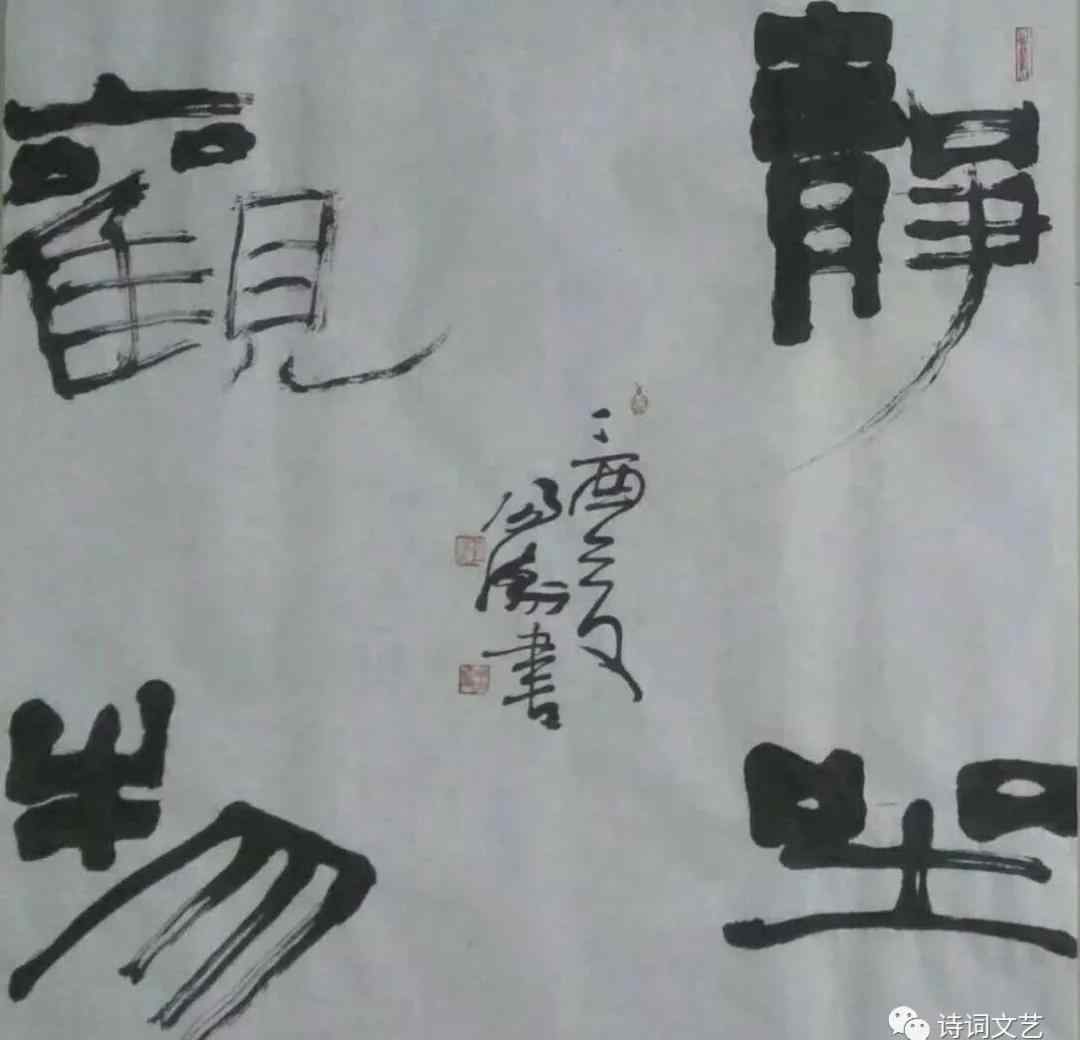 靜坐
觀物
丁酉之夏
書
诗词文艺